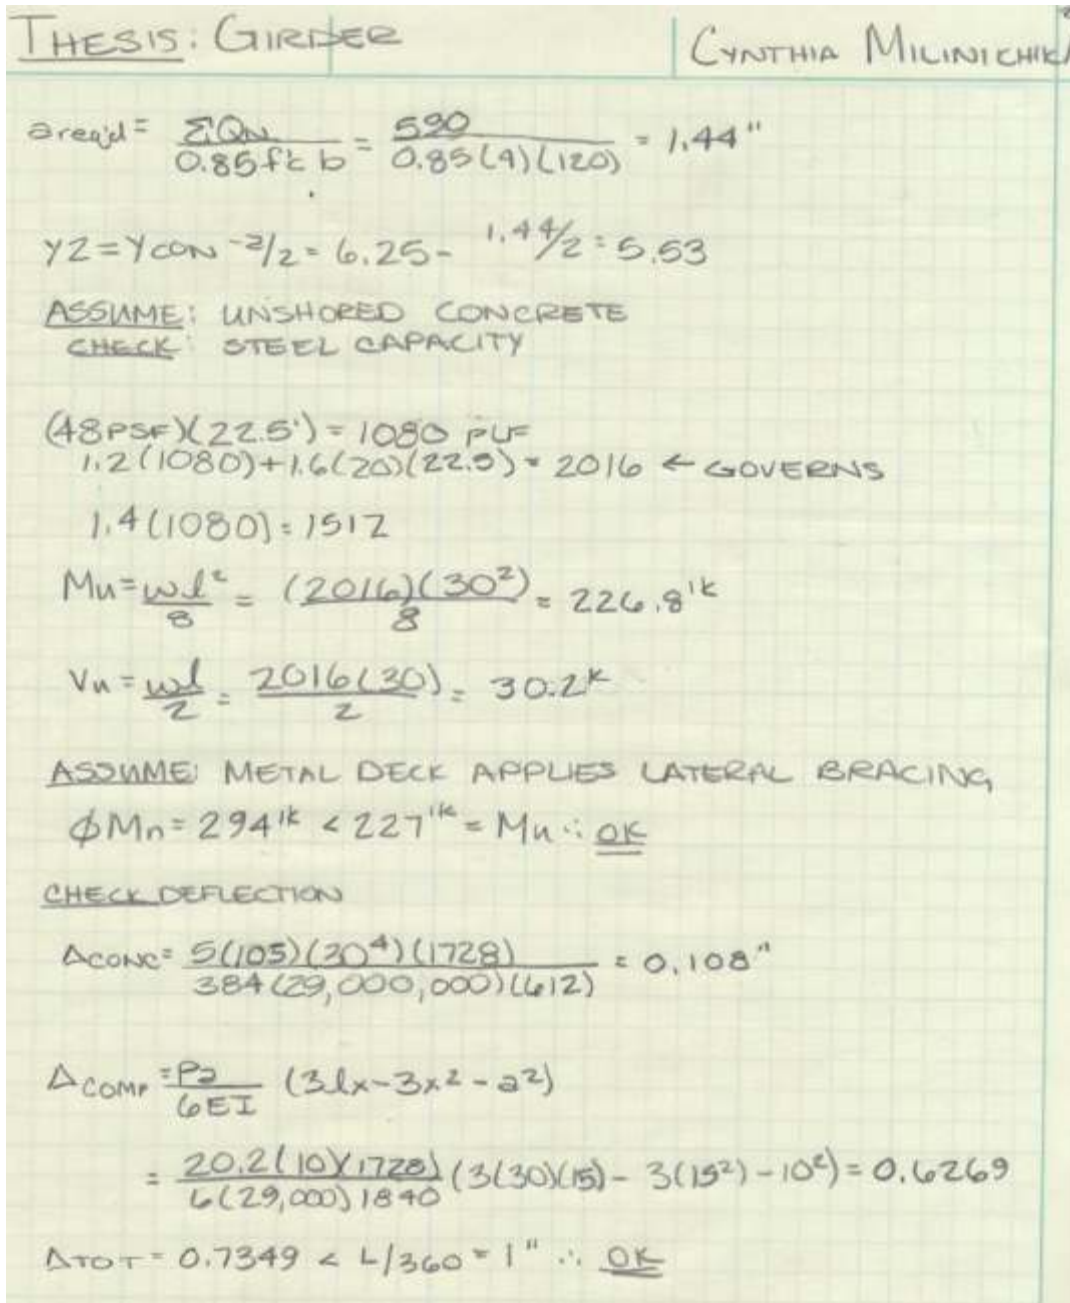 THESIS: GIRDER CYNTHIA MILINICHIK
areq'd = ΣQN / 0.85f'c b = 590 / 0.85(4)(120) = 1.44"
Y2 = YCON - a/2 = 6.25 - 1.44/2 = 5.53
ASSUME: UNSHORED CONCRETE
CHECK: STEEL CAPACITY
(48PSF)(22.5') = 1080 PLF
1.2(1080)+1.6(20)(22.5) = 2016 ← GOVERNS
1.4(1080) = 1512
Mu = wl²/8 = (2016)(30²)/8 = 226.8'k
Vu = wl/2 = 2016(30)/2 = 30.2k
ASSUME: METAL DECK APPLIES LATERAL BRACING
ϕMn = 294'k < 227'k = Mu ∴ OK
CHECK DEFLECTION
ΔCONC = 5(105)(30⁴)(1728) / 384(29,000,000)(612) = 0.108"
ΔCOMP = Pa/6EI (3lx-3x²-a²)
= 20.2(10)(1728) / 6(29,000)1840 (3(30)(15) - 3(15²) - 10²) = 0.6269
ΔTOT = 0.7349 < L/360 = 1" ∴ OK